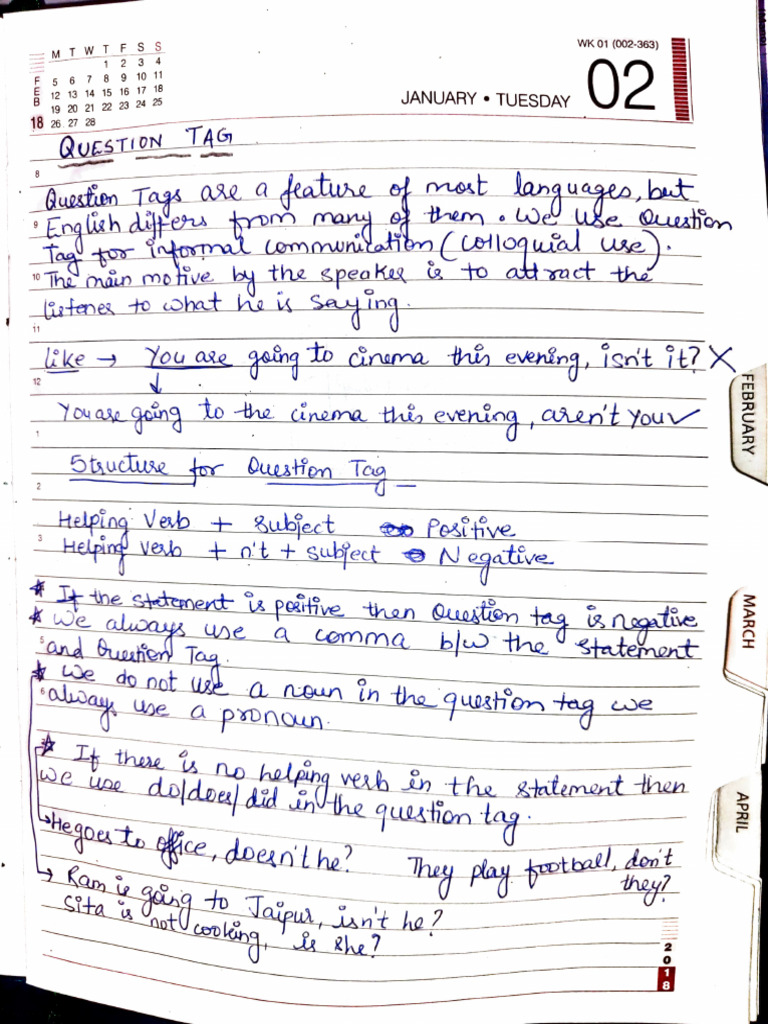 M T W T F S S
1 2 3 4
F 5 6 7 8 9 10 11
E 12 13 14 15 16 17 18
B 19 20 21 22 23 24 25
18 26 27 28
WK 01 (002-363)
JANUARY • TUESDAY 02
QUESTION TAG
8
Question Tags are a feature of most languages, but
9 English differs from many of them. We use Question
Tag for informal communication (colloquial use).
10 The main motive by the speaker is to attract the
listener to what he is saying.
11
like → You are going to cinema this evening, isn't it? X
12 ↓
You are going to the cinema this evening, aren't you ✓
1
Structure for Question Tag
2
Helping Verb + subject Positive
3 Helping verb + n't + subject Negative
* If the statement is positive then Question tag is negative
* We always use a comma b/w the statement
5 and Question Tag.
* We do not use a noun in the question tag we
6 always use a pronoun.
* If there is no helping verb in the statement then
we use do/does/did in the question tag.
→ He goes to office, doesn't he? They play football, don't
they?
→ Ram is going to Jaipur, isn't he?
Sita is not cooking, is she?
FEBRUARY
MARCH
APRIL
2018